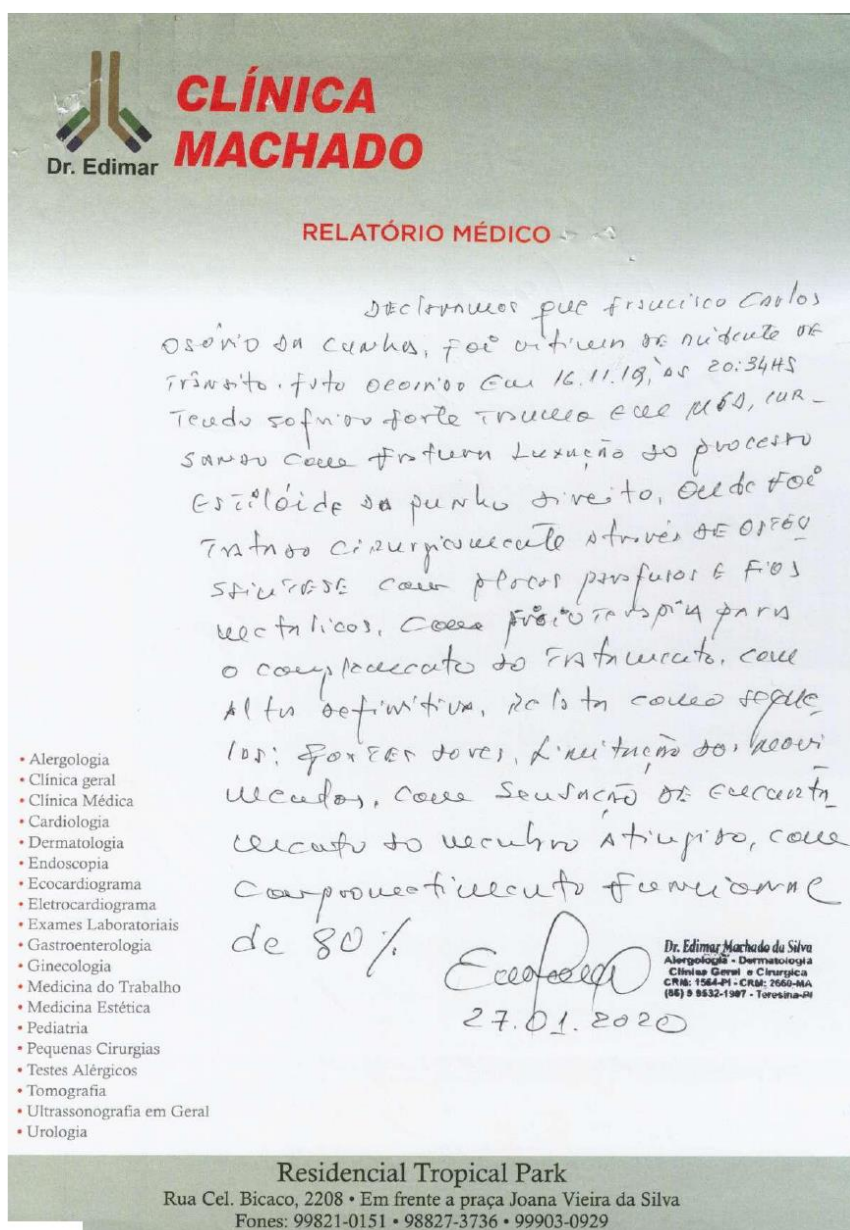 CLÍNICA
MACHADO
Dr. Edimar
RELATÓRIO MÉDICO
Declaramos que Francisco Carlos
Osório da Cunha, foi vitima de acidente de
Trânsito. fato ocorrido em 16.11.19, às 20:34HS
Tendo sofrido forte trauma em MSD, cur-
sando com fratura Luxação do processo
Estilóide da punho direito, onde foi
Tratado cirurgicamente através de osteo
ssintese com placas parafusos e fios
metalicos, com fisioterapia para
o complemento do tratamento, com
Alta definitiva, relata como seque
las: fortes dores, limitação dos movi
mentos, com sensação de encurta
mento do membro atingido, com
comprometimento funcional
de 80%
27.01.2020
Dr. Edimar Machado da Silva
Alergologia - Dermatologia
Clínica Geral e Cirurgica
CRM: 1564-PI - CRM: 2660-MA
(86) 9 9532-1907 - Teresina-PI
• Alergologia
• Clínica geral
• Clínica Médica
• Cardiologia
• Dermatologia
• Endoscopia
• Ecocardiograma
• Eletrocardiograma
• Exames Laboratoriais
• Gastroenterologia
• Ginecologia
• Medicina do Trabalho
• Medicina Estética
• Pediatria
• Pequenas Cirurgias
• Testes Alérgicos
• Tomografia
• Ultrassonografia em Geral
• Urologia
Residencial Tropical Park
Rua Cel. Bicaco, 2208 • Em frente a praça Joana Vieira da Silva
Fones: 99821-0151 • 98827-3736 • 99903-0929